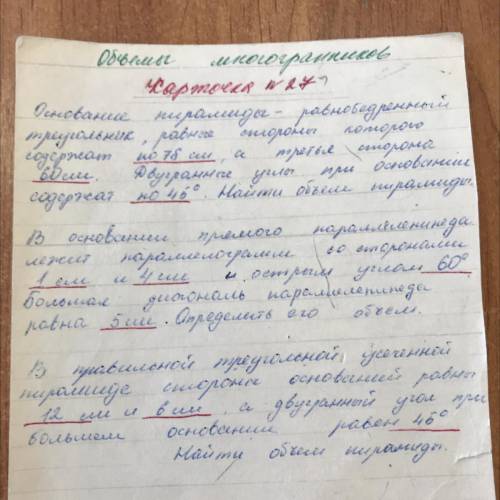 Объемы многогранников
Карточка № 27
Основание пирамиды - равнобедренный
треугольник, равные стороны которого
содержат по 78 см, а третья сторона
60 см. Двугранные углы при основании
содержат по 45°. Найти объем пирамиды.
В основании прямого параллелепипеда
лежит параллелограмм со сторонами
1 см и 4 см и острым углом 60°
Большая диагональ параллелепипеда
равна 5 см. Определить его объем.
В правильной треугольной усеченной
пирамиде стороны оснований равны
12 см и 6 см, а двугранный угол при
большем основании равен 45°
Найти объем пирамиды.